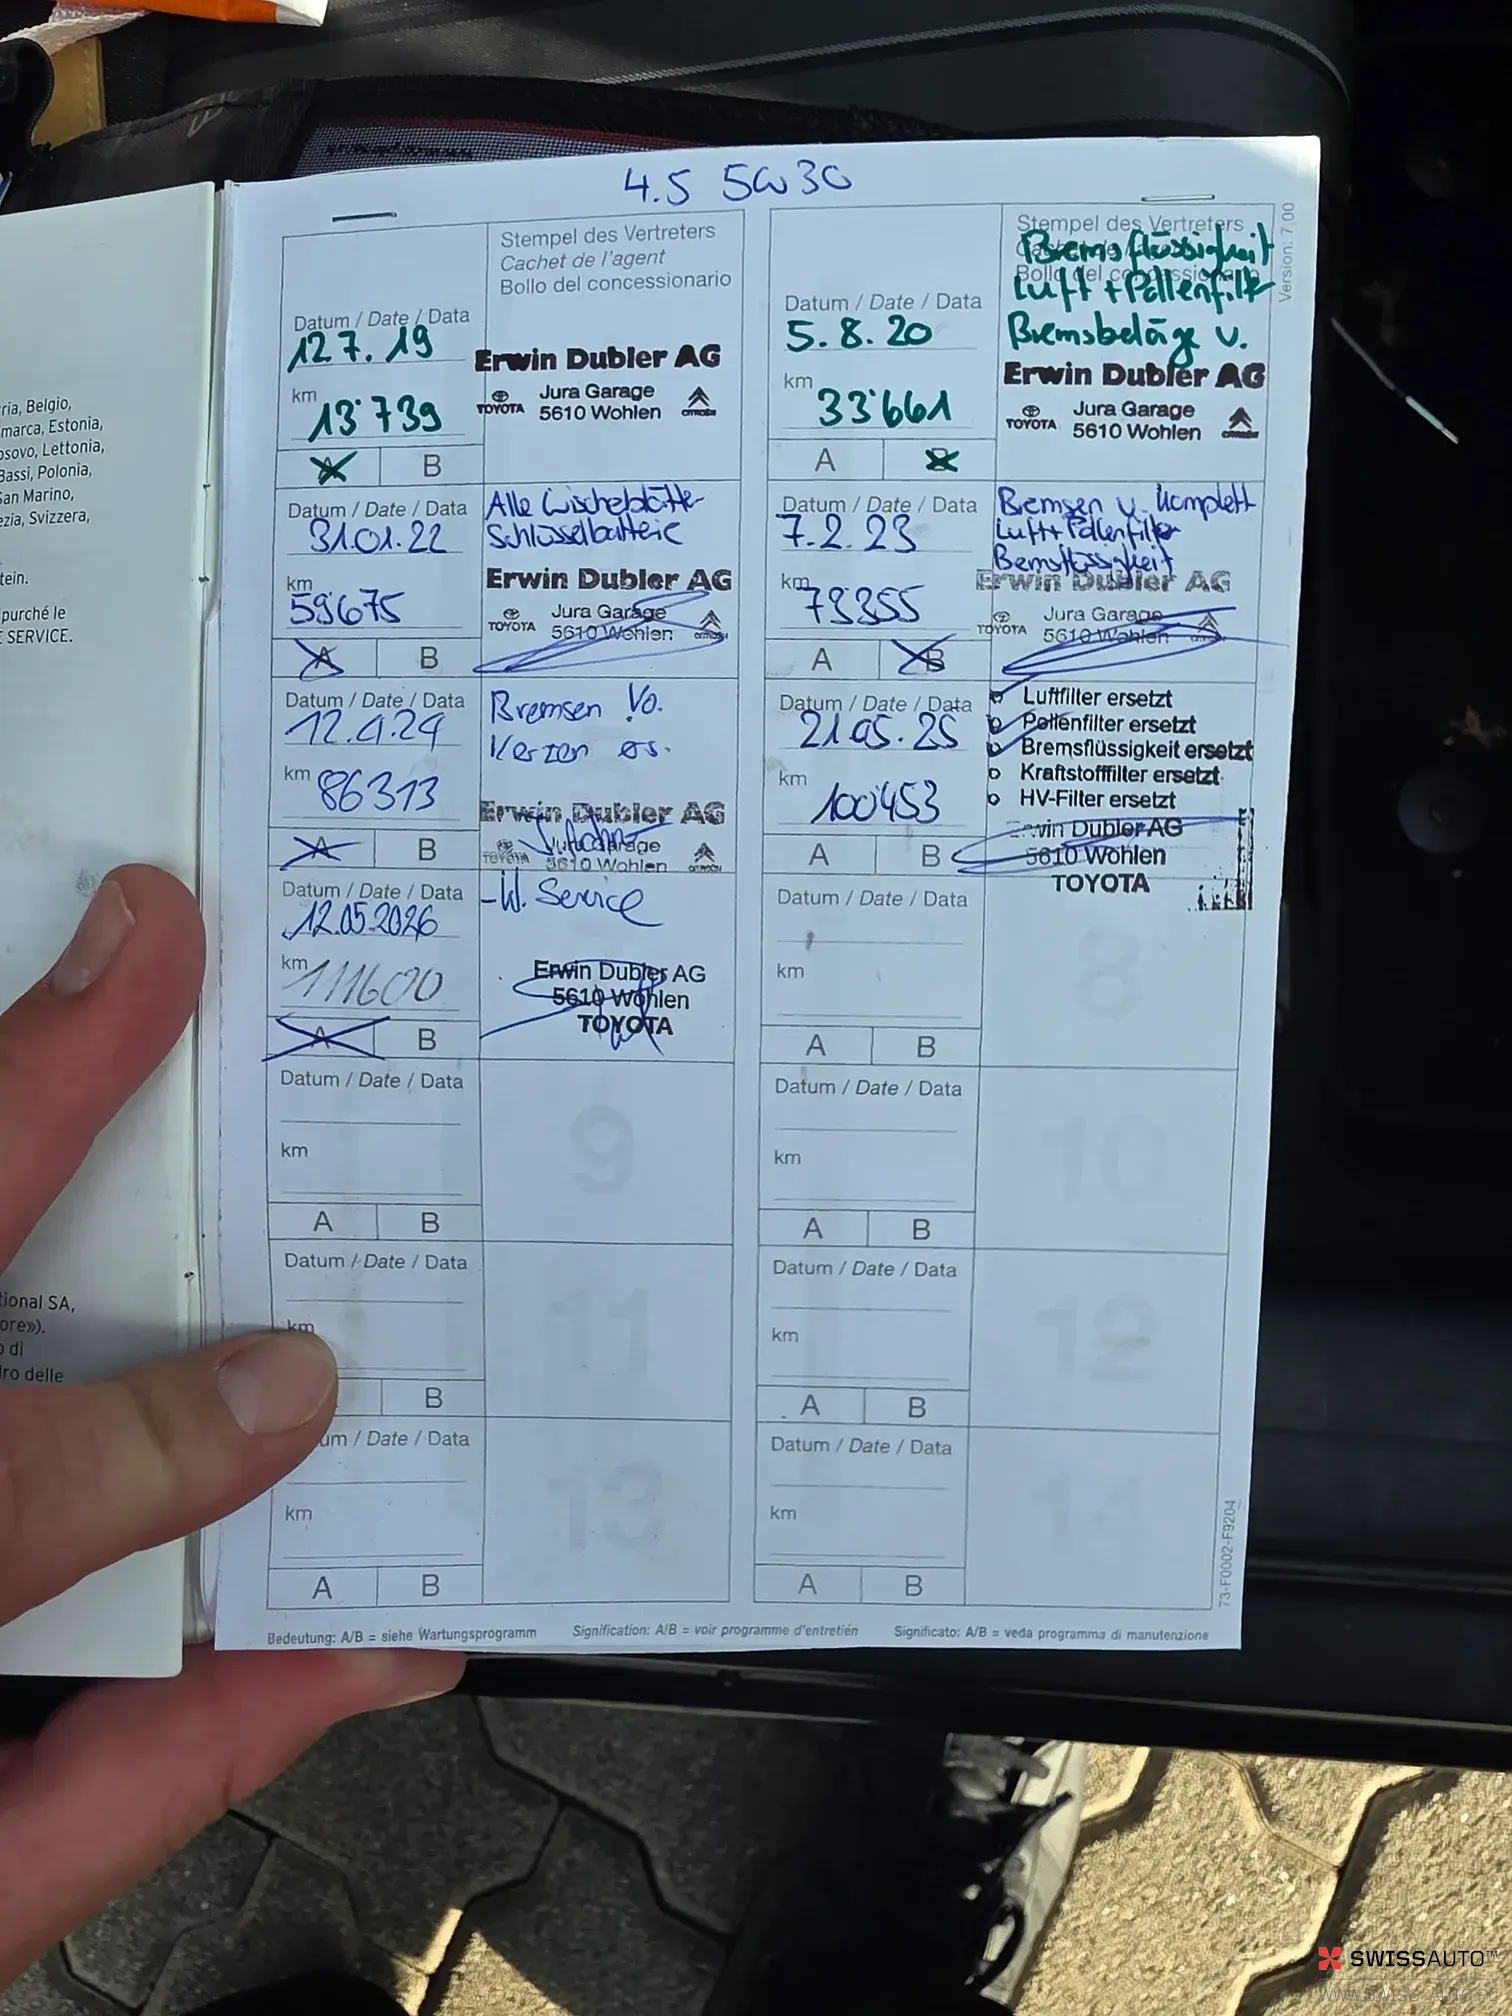 4.5 5W30
Stempel des Vertreters
Cachet de l'agent
Bollo del concessionario
Datum / Date / Data
12 7. 19
km
13'739
A B
Erwin Dubler AG
TOYOTA
Jura Garage
5610 Wohlen
CITROËN
Stempel des Vertreters
Bremsflüssigkeit
Luft + Pollenfilter
Bremsbeläge v.
Datum / Date / Data
5. 8. 20
km
33'661
A B
Erwin Dubler AG
TOYOTA
Jura Garage
5610 Wohlen
CITROËN
Version: 7.00
Datum / Date / Data
31.01.22
km
59'675
A B
Alle Wischeblätter
Schlüsselbatterie
Erwin Dubler AG
TOYOTA
Jura Garage
5610 Wohlen
Datum / Date / Data
7. 2. 23
km
73355
A B
Bremsen v. komplett
Luft+ Pollenfilter
Bremsflüssigkeit
Erwin Dubler AG
TOYOTA
Jura Garage
5610 Wohlen
Datum / Date / Data
12.4.24
km
86313
A B
Bremsen Vo.
Kerzen es.
Erwin Dubler AG
TOYOTA
Jura Garage
5610 Wohlen
CITROËN
Datum / Date / Data
21.05.25
km
100'453
A B
Luftfilter ersetzt
Pollenfilter ersetzt
Bremsflüssigkeit ersetzt
Kraftstofffilter ersetzt
HV-Filter ersetzt
Erwin Dubler AG
5610 Wohlen
TOYOTA
Datum / Date / Data
12.05.2026
km
111600
A B
-W. Service
Erwin Dubler AG
5610 Wohlen
TOYOTA
Datum / Date / Data
km
A B
8
Datum / Date / Data
km
A B
9
Datum / Date / Data
km
A B
10
Datum / Date / Data
km
B
11
Datum / Date / Data
km
A B
12
um / Date / Data
km
A B
13
Datum / Date / Data
km
A B
14
73-F0002-F9204
Bedeutung: A/B = siehe Wartungsprogramm
Signification: A/B = voir programme d'entretien
Significato: A/B = veda programma di manutenzione
ria, Belgio,
marca, Estonia,
osovo, Lettonia,
Bassi, Polonia,
San Marino,
ezia, Svizzera,
tein.
purché le
E SERVICE.
tional SA,
ore»).
o di
dro delle
SWISSAUTO™